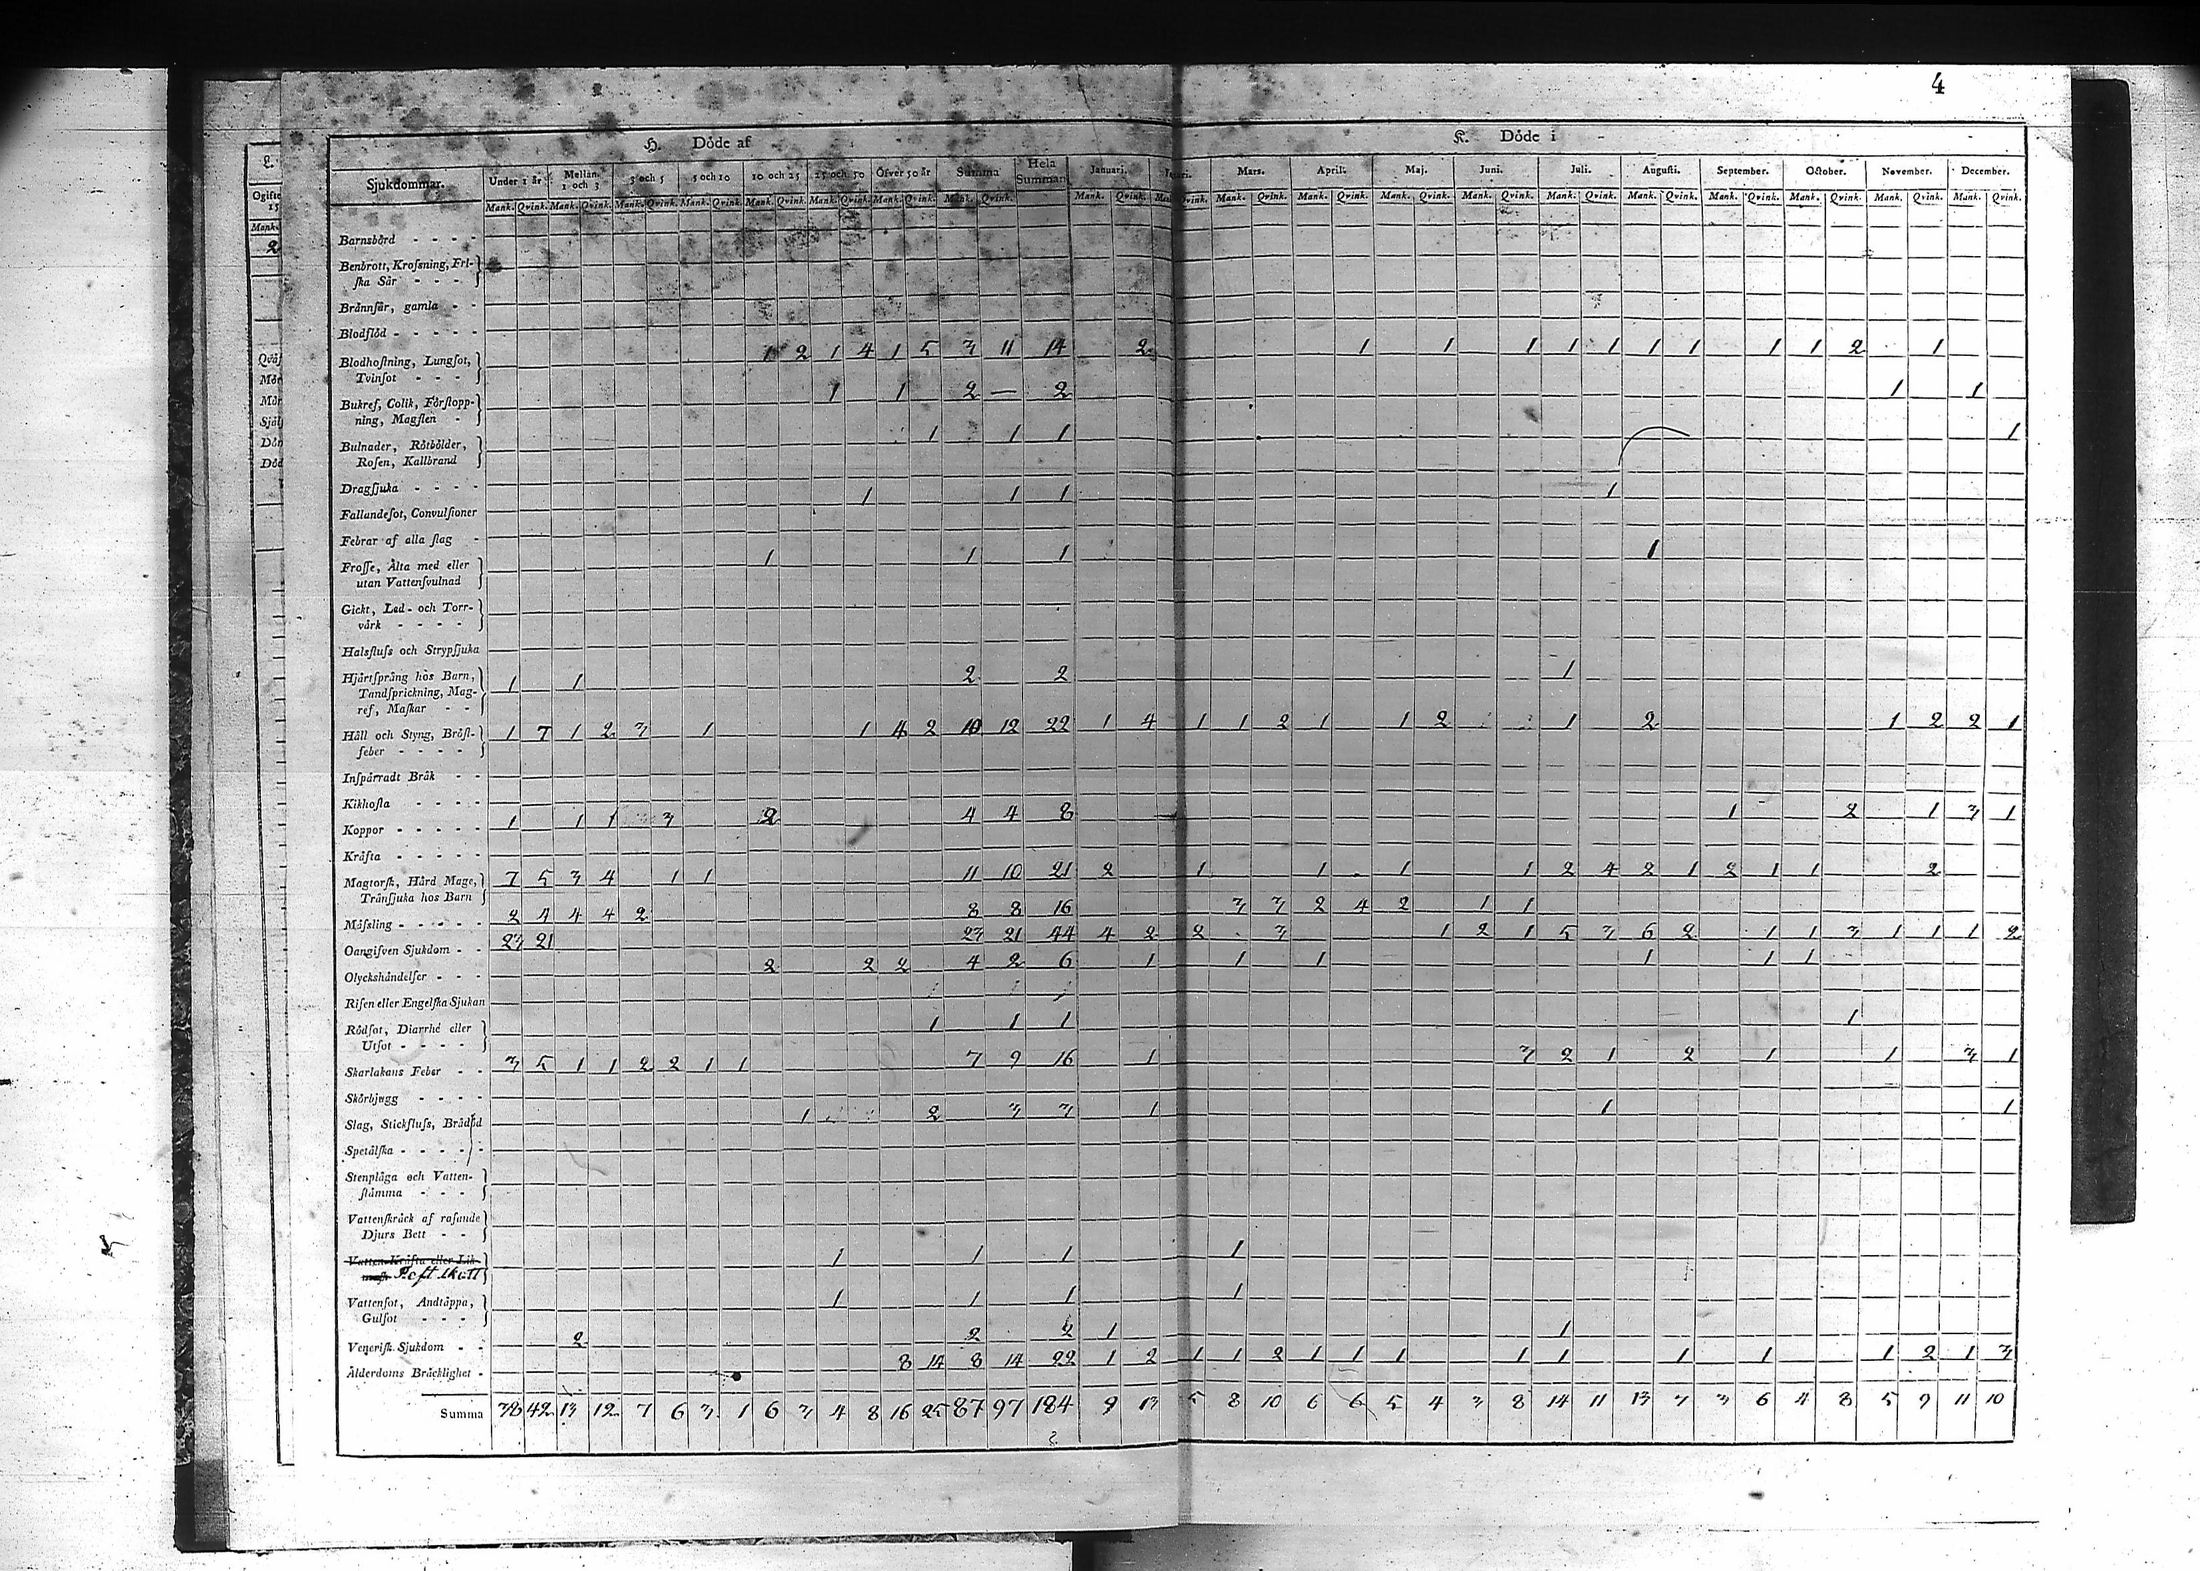 4
H. Döde af
K. Döde i
Sjukdommar. Under 1 år Mellan 1 och 3 3 och 5 5 och 10 10 och 25 25 och 50 Öfver 50 år Summa Hela Summan Januari. Mars. April. Maj. Juni. Juli. Augusti. September. October. November. December.
Mank. Qvink. Mank. Qvink. Mank. Qvink. Mank. Qvink. Mank. Qvink. Mank. Qvink. Mank. Qvink. Mank. Qvink. Mank. Qvink. Mank. Qvink. Mank. Qvink. Mank. Qvink. Mank. Qvink. Mank. Qvink. Mank. Qvink. Mank. Qvink. Mank. Qvink. Mank. Qvink. Mank. Qvink. Mank. Qvink.
Barnsbörd - - - -
Benbrott, Krosning, Fri-
ska Sår - - -
Brännsår, gamla - -
Blodflöd - - - - -
Blodhostning, Lungsot, 1 2 1 4 1 5 3 11 14 2 1 1 1 1 1 1 1 1 1 2 1
Tvinsot - - - -
Bukref, Colik, Förstopp- 1 1 2 — 2 1 1
ning, Magsten -
Bulnader, Rötbölder, 1 1 1 1
Rosen, Kallbrand
Dragsjuka - - - -
Fallandesot, Convulsioner 1 1 1 1
Febrar af alla slag -
Frosse, Älta med eller 1 1 1 1
utan Vattensvulnad
Gickt, Led- och Torr-
värk - - - -
Halsfluss och Strypsjuka
Hjärtsprång hos Barn, 1 1 2 2 1
Tandsprickning, Mag-
ref, Maskar - -
Håll och Styng, Bröst- 1 7 1 2 3 1 1 4 2 10 12 22 1 4 1 1 2 1 1 2 1 2 1 2 2 1
feber - - - -
Inspärradt Bråk - -
Kikhosta - - - -
Koppor - - - - - 1 1 1 3 2 4 4 8 1 2 1 3 1
Kräfta - - - - -
Magtorsk, Hård Mage, 7 5 3 4 1 1 11 10 21 2 1 1 1 1 2 4 2 1 2 1 1 2
Tränsjuka hos Barn
Mässling - - - - - 2 4 4 4 2 8 8 16 3 3 2 4 2 1 1
Oangifven Sjukdom - - 23 21 23 21 44 4 2 2 3 1 2 1 5 3 6 2 1 1 3 1 1 1 2
Olyckshändelser - - - 2 2 2 4 2 6 1 1 1 1 1 1
Risen eller Engelska Sjukan
Rödsot, Diarrhé eller 1 1 1 1
Utsot - - - -
Skarlakans Feber - - 3 5 1 1 2 2 1 1 7 9 16 1 3 2 1 2 1 1 3 1
Skörbjugg - - - -
Slag, Stickfluss, Brådöd 1 2 3 3 1 1 1
Spetälska - - - - -
Stenplåga och Vatten-
stämma - - -
Vattenskräck af rasande
Djurs Bett - -
Vatten-Kräfta eller Lik- 1 1 1 1
Vattensot, Andtäppa, 1 1 1 1
Gulsot - - -
Venerisk Sjukdom - - 2 2 2 1 1
Ålderdoms Bräcklighet - 8 14 8 14 22 1 2 1 1 2 1 1 1 1 1 1 1 1 2 1 3
Summa 38 42 13 12 7 6 3 1 6 3 4 8 16 25 87 97 184 9 13 5 8 10 6 6 5 4 3 8 14 11 13 7 3 6 4 8 5 9 11 10